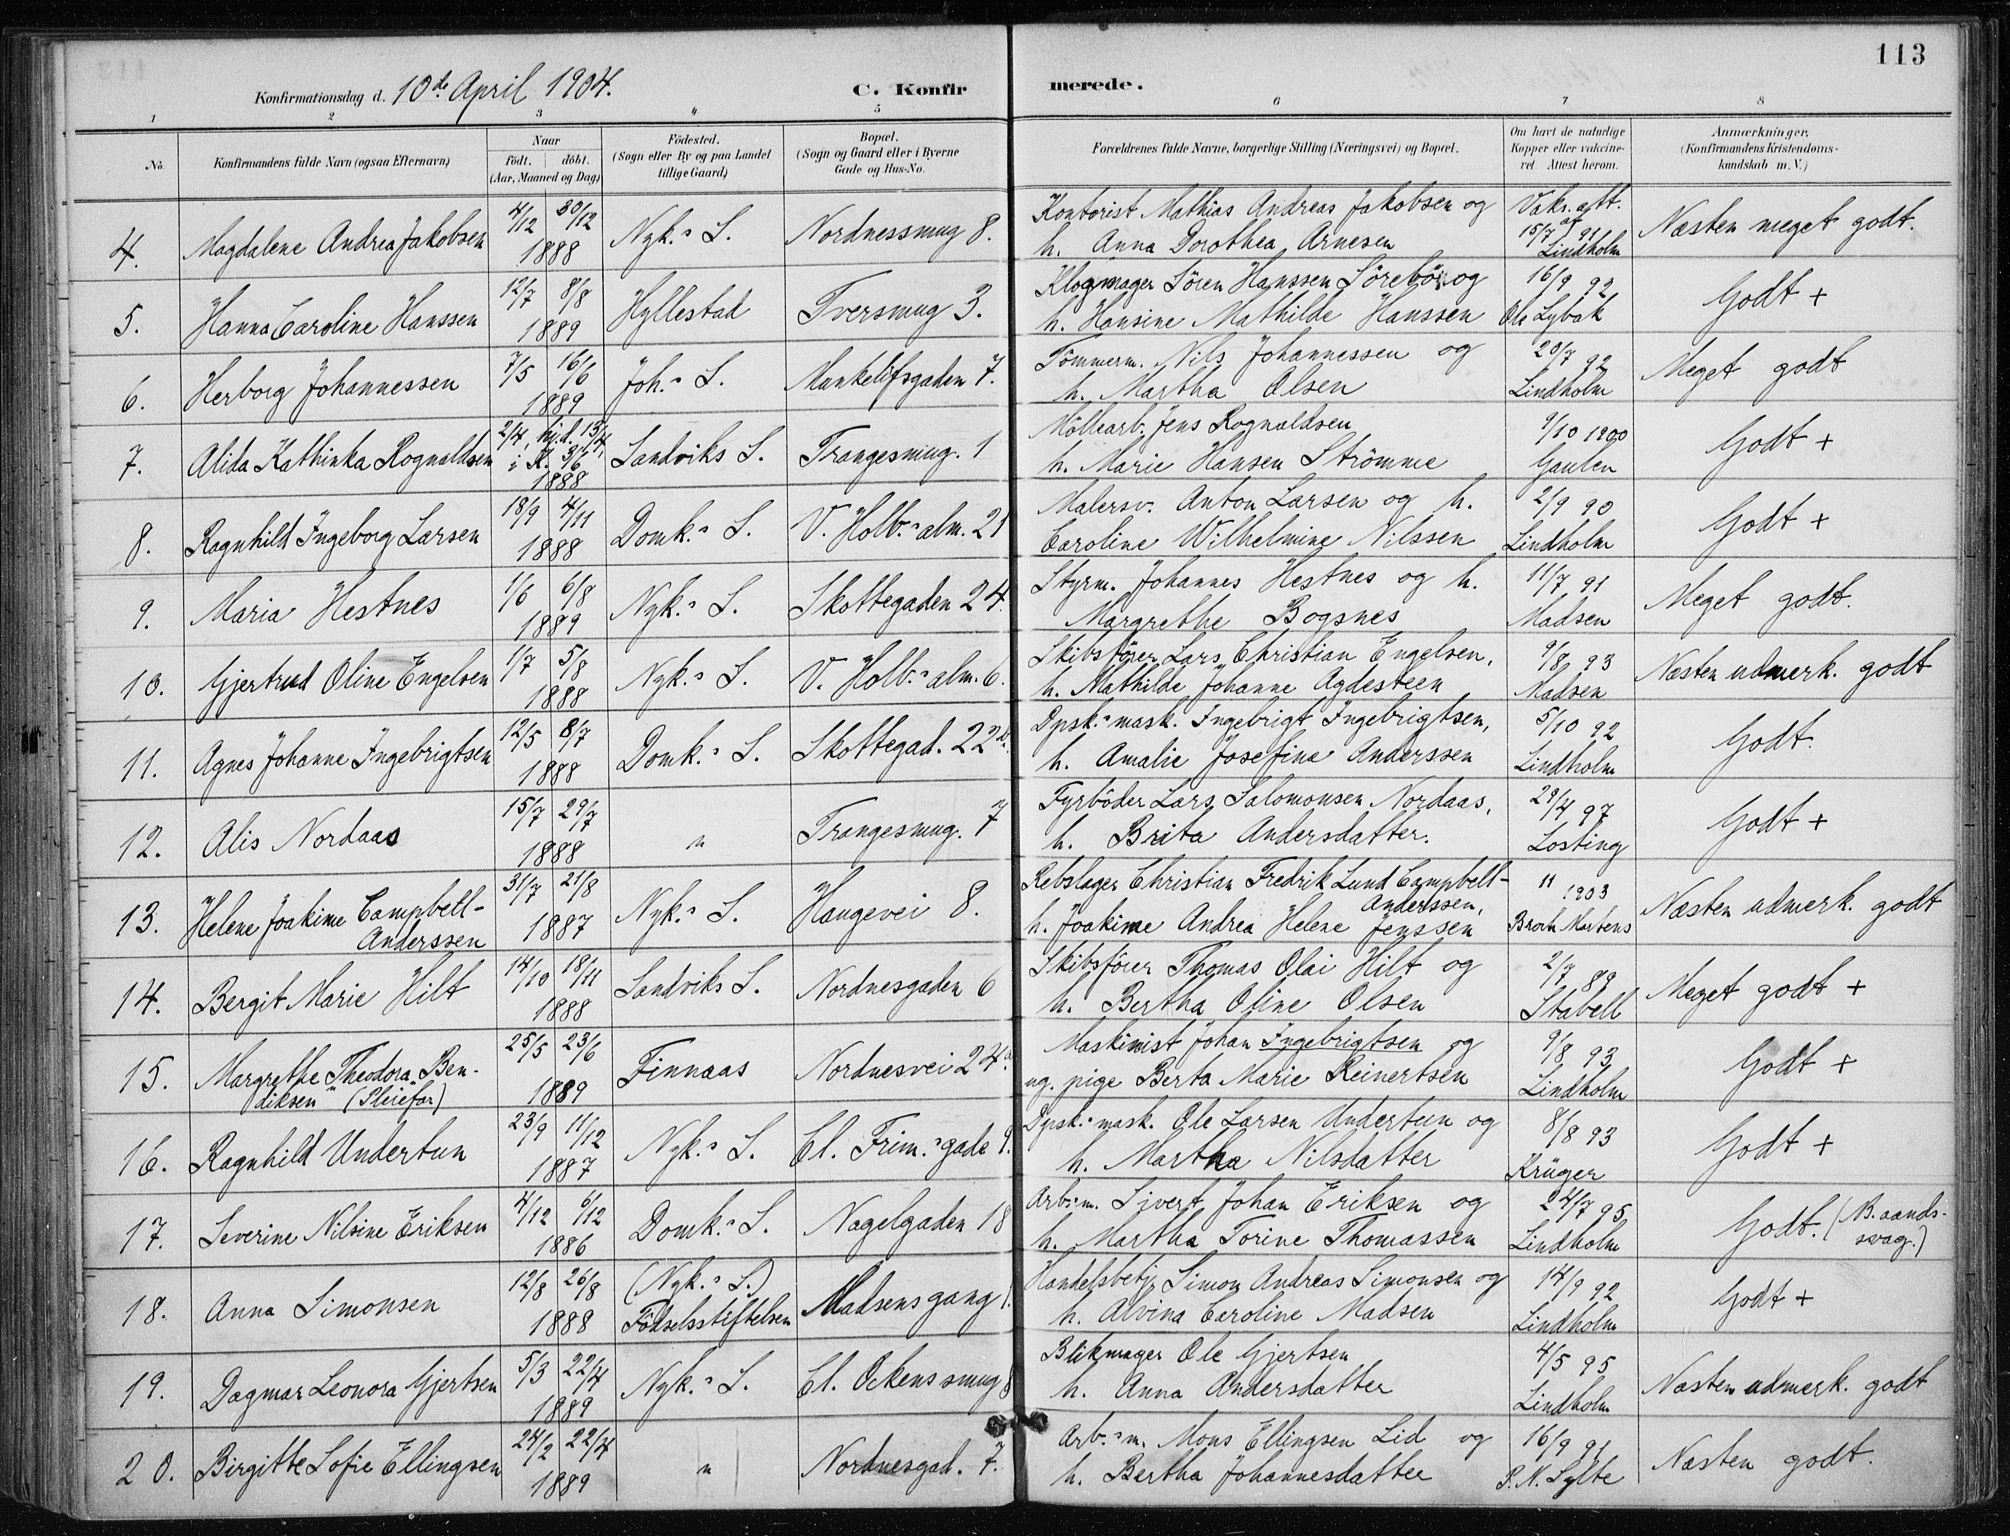 113
Konfirmationsdag d. 10de April 1904.
C. Konfirmerede.
1 2 3 4 5 6 7 8
No. Konfirmandens fulde Navn (ogsaa Efternavn) Naar födt. döbt. (Aar, Maaned og Dag) Födested. (Sogn eller By og paa Landet tillige Gaard) Bopæl. (Sogn og Gaard eller i Byerne Gade og Hus-No. Forældrenes fulde Navne, borgerlige Stilling (Næringsvei) og Bopæl. Om havt de naturlige Kopper eller vakcineret. Attest herom. Anmærkninger. (Konfirmandens Kristendomskundskab m. V.)
4. Magdalene Andrea Jakobsen 4/12 30/12 1888 Nyk.s S. Nordnessmug 8. Kontorist Mathias Andreas Jakobsen og h. Anna Dorothea Arnesen Vakc. att. af 15/7 91 Lindholm Næsten meget godt.
5. Hanna Caroline Hanssen 12/7 8/8 1889 Hyllestad Tversmug 3. Sören Hanssen Sörebö og h. Hansine Mathilde Hanssen 16/9 92 Ole Lybak Godt +
6. Herborg Johannessen 7/5 16/6 1889 Joh.s S. Munkelifsgaden 7. Tömmerm. Nils Johannessen og h. Martha Olsen 20/7 92 Lindholm Meget godt
7. Alida Kathinka Rognaldsen 2/4, hj.d. 13/4, i K. 3/6 1888 Sandviks S. Trangesmug. 1 Möllearb. Jens Rognaldsen h. Marie Hansen Strömme 9/10 1900 Gaulen Godt +
8. Ragnhild Ingeborg Larsen 18/9 4/11 1888 Domk.s S. V. Holb.s alm. 21 Malersv. Anton Larsen og h. Caroline Wilhelmine Nilssen 2/9 90 Lindholm Godt +
9. Maria Hestnes 1/6 6/8 1889 Nyk.s S. Skottegaden 24. Styrm. Johannes Hestnes og h. Margrethe Bogsnes 11/7 91 Madsen Meget godt.
10. Gjertrud Oline Engelsen 1/7 5/8 1888 Nyk.s S. V. Holb.s alm. 6. Skibsförer Lars Christian Engelsen, h. Mathilde Johanne Agdesteen 9/8 93 Madsen Næsten udmerk. godt
11. Agnes Johanne Ingebrigtsen 12/5 8/7 1888 Domk.s S. Skottegad. 22 Dpsk.s mask. Ingebrigt Ingebrigtsen, h. Amalie Josefine Anderssen 5/10 92 Lindholm Godt.
12. Alis Nordaas 15/7 29/7 1888 " Trangesmug. 7 Fyrböder Lars Salomonsen Nordaas, h. Brita Andersdatter. 29/4 97 Losting Godt +
13. Helene Joakime Campbell-Anderssen 31/7 21/8 1887 Nyk.s S. Haugevei 8. Rebslager Christian Fredrik Lund Campbell-Anderssen, h. Joakime Andrea Helene Jenssen 11 1903 Broch Martens Næsten udmerk. godt
14. Bergit Marie Hilt 14/10 18/11 1888 Sandviks S. Nordnesgaden 6 Skibsförer Thomas Olai Hilt og h. Bertha Oline Olsen 2/7 89 Stabell Meget godt +
15. Margrethe Theodora Bendiksen (Pleiefar) 25/5 23/6 1889 Finnaas Nordnesvei 24a. Maskinist Johan Ingebrigtsen og ug. pige Berta Marie Reinertsen 9/8 93 Lindholm Godt +
16. Ragnhild Undertun 23/9 11/12 1887 Nyk.s S. Cl. Frim.s gade 9. Dpsk.s mask. Ole Larsen Undertun og h. Martha Nilsdatter 8/8 93 Krüger Godt +
17. Severine Nilsine Eriksen 4/12 6/12 1886 Domk.s S. Nagelgaden 18 Arb.s m. Sjvert Johan Eriksen og h. Martha Torine Thomassen 24/7 95 Lindholm Godt. (B. aandssvag.)
18. Anna Simonsen 12/8 26/8 1888 (Nyk.s S.) Födselsstiftelsen Madsensgang 1. Handelsbetj. Simon Andreas Simonsen og h. Alvina Caroline Madsen 14/9 92 Lindholm Godt +
19. Dagmar Leonora Gjertsen 5/3 22/4 1889 Nyk.s S. Cl. Ockens smug 8 Blikmager Ole Gjertsen h. Anna Andersdatter 4/5 95 Lindholm Næsten udmerk. godt
20. Birgitte Sofie Ellingsen 24/2 22/4 1889 " Nordnesgad. 7. Arb.s m. Mons Ellingsen Lid og h. Bertha Johannesdatter 16/9 91 P. N. Sylte Næsten godt.